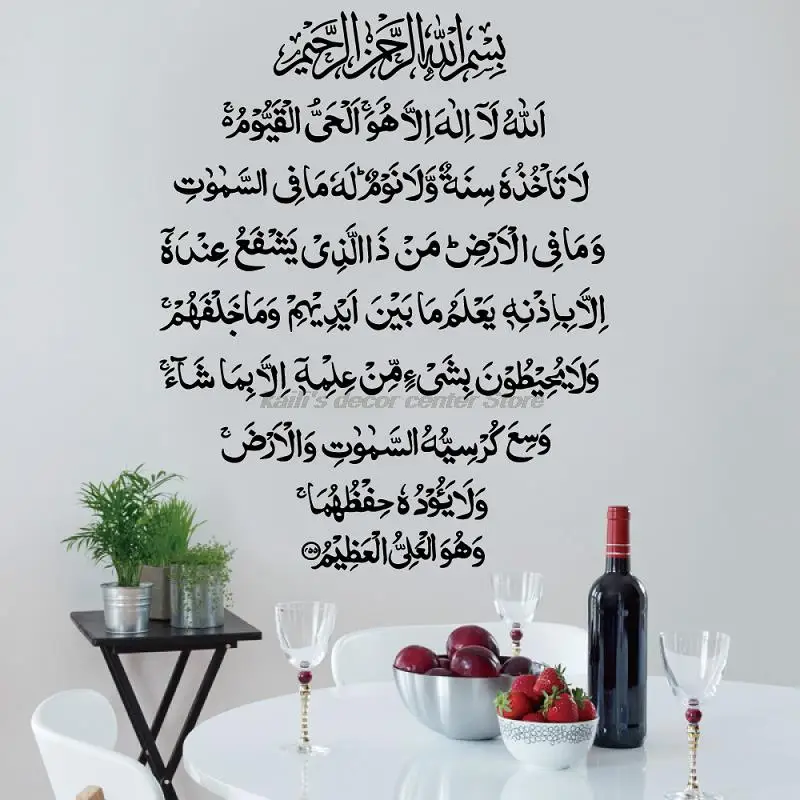 بِسْمِ اللهِ الرَّحْمٰنِ الرَّحِيْمِ
اَللهُ لَآ اِلٰهَ اِلَّا هُوَ ۚ اَلْحَیُّ الْقَيُّوْمُ ۚ
لَا تَاْخُذُهٗ سِنَةٌ وَّلَا نَوْمٌ ؕ لَهٗ مَا فِی السَّمٰوٰتِ
وَ مَا فِی الْاَرْضِ ؕ مَنْ ذَا الَّذِیْ یَشْفَعُ عِنْدَهٗۤ
اِلَّا بِاِذْنِهٖ یَعْلَمُ مَا بَیْنَ اَیْدِیْهِمْ وَمَا خَلْفَهُمْ ۚ
وَلَا یُحِیْطُوْنَ بِشَیْءٍ مِّنْ عِلْمِهٖۤ اِلَّا بِمَا شَآءَ ۚ
kaili's decor center Store
وَسِعَ كُرْسِیُّهُ السَّمٰوٰتِ وَالْاَرْضَ ۚ
وَلَا یَـُٔوْدُهٗ حِفْظُهُمَا ۚ
وَهُوَ الْعَلِیُّ الْعَظِیْمُ ۲۵۵